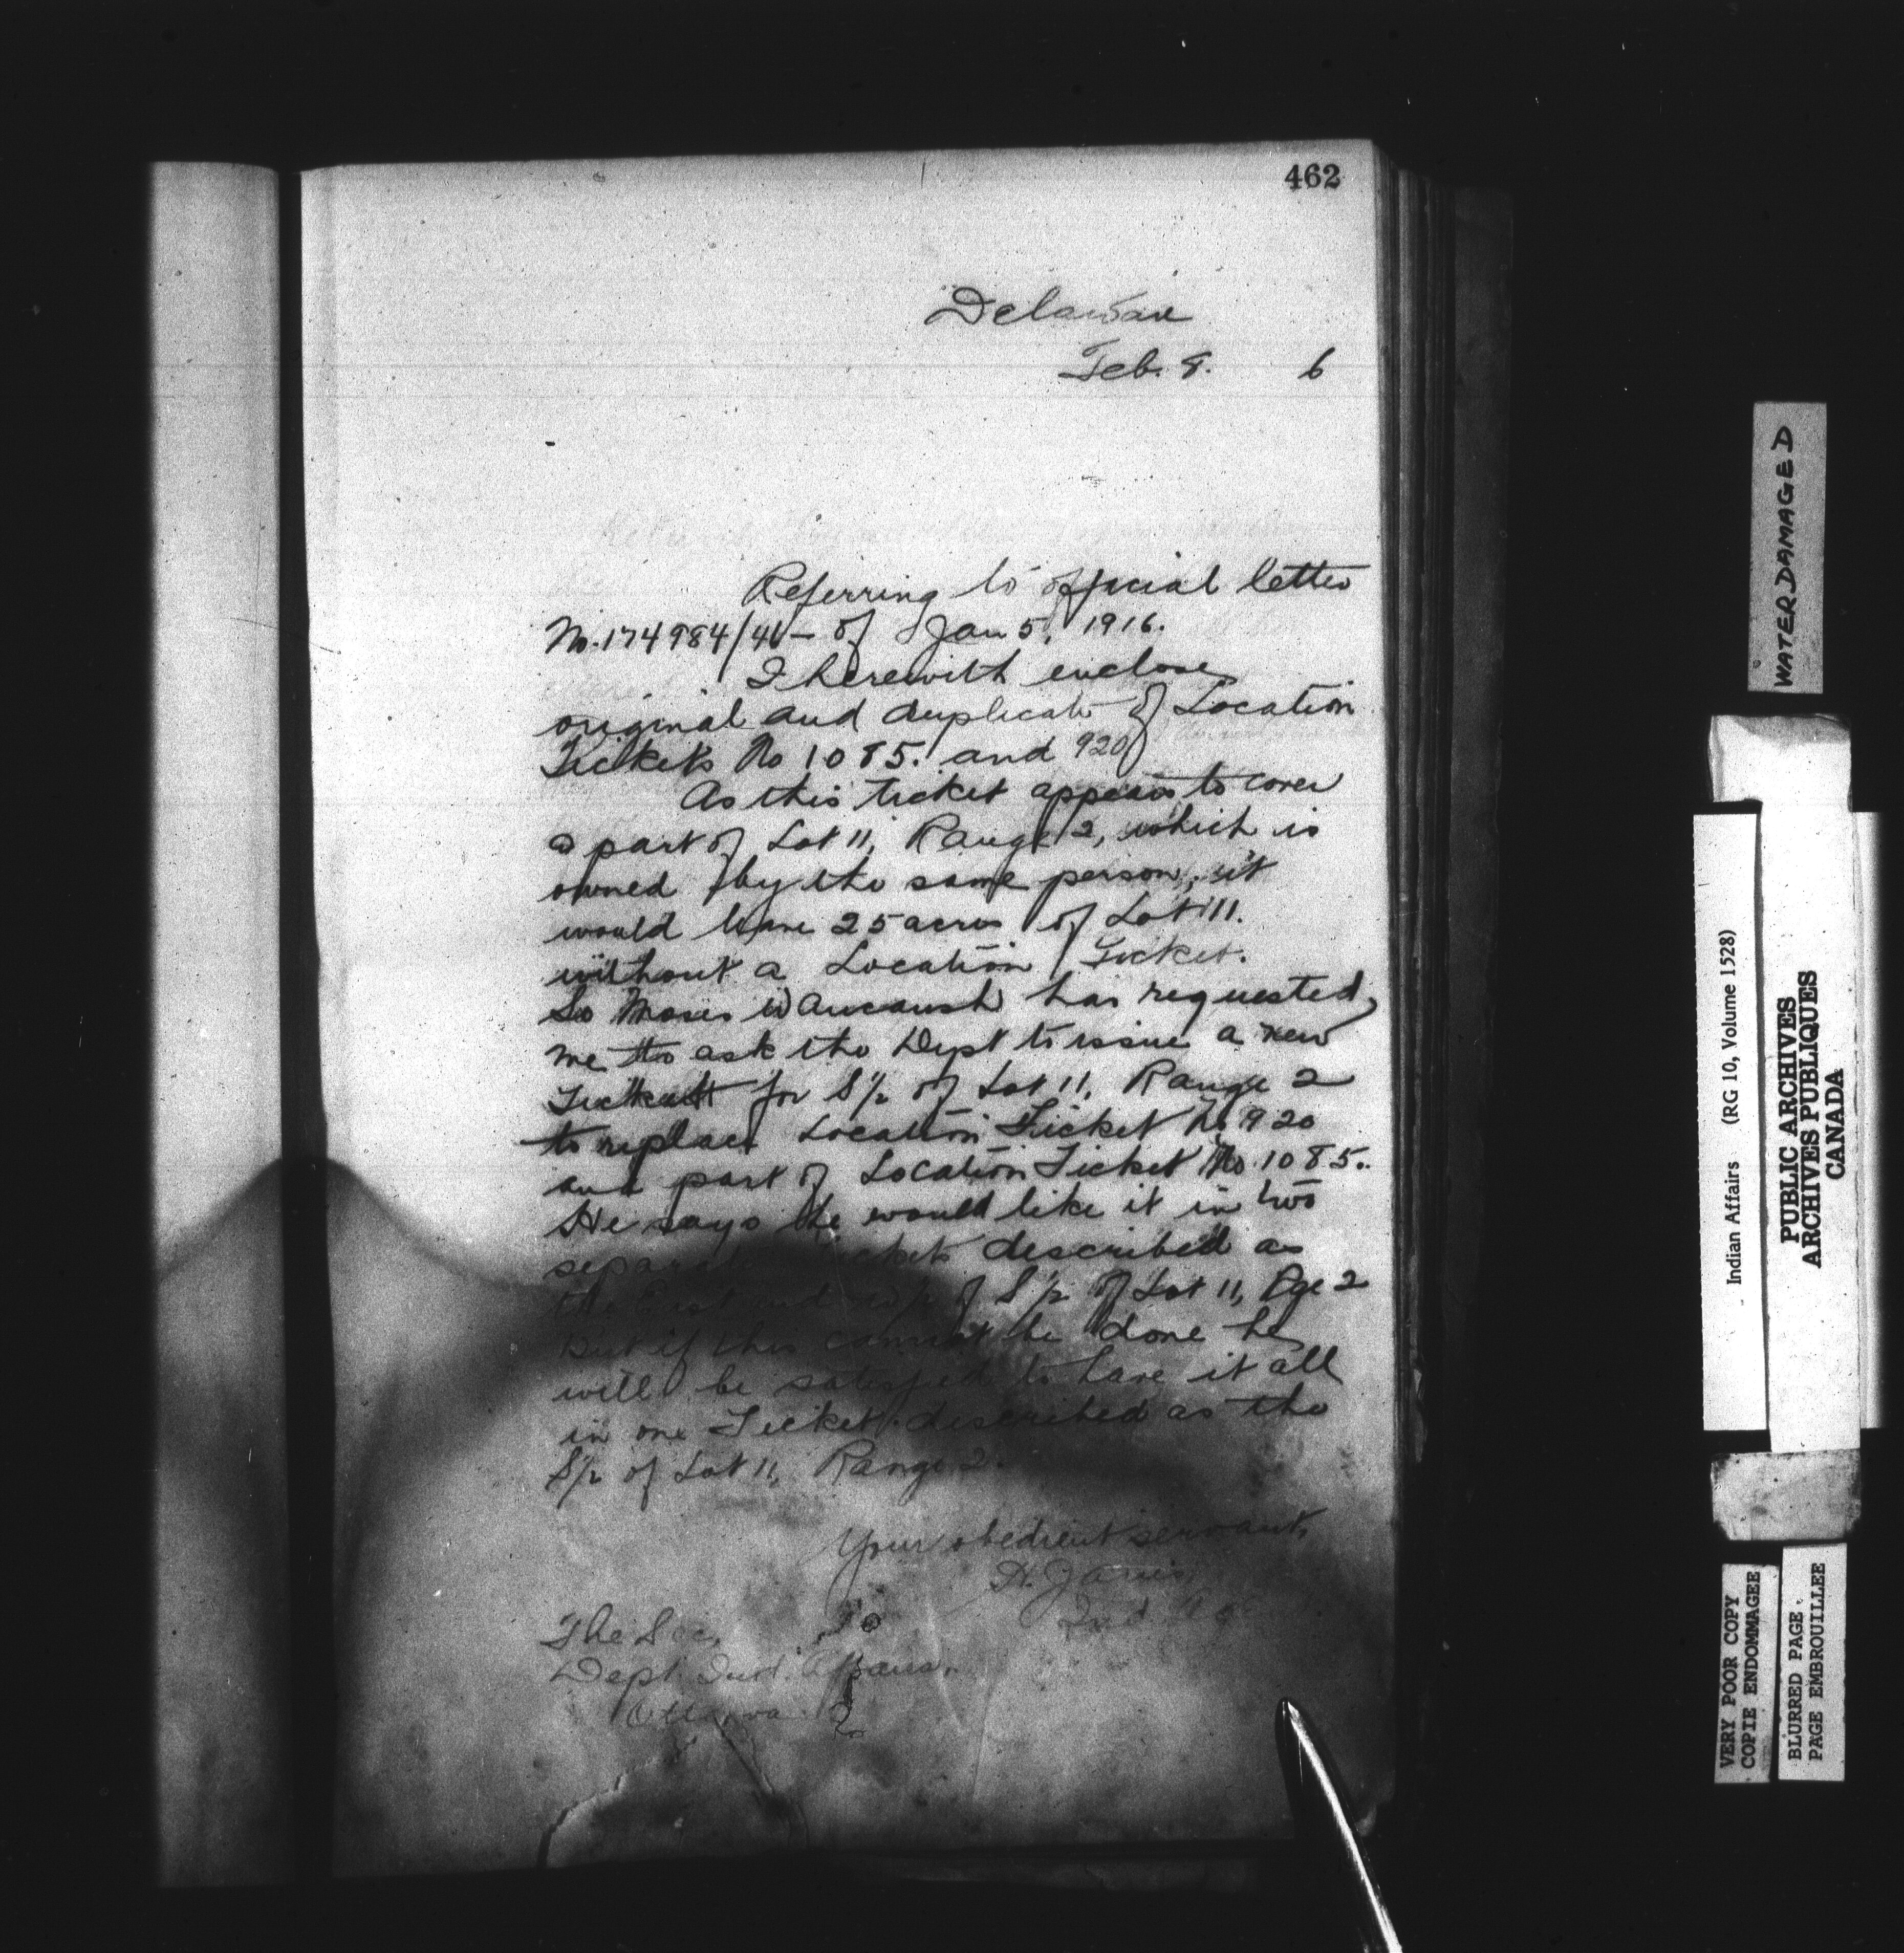 462
Delaware
Feb. 8. 6
Referring to official letter
No. 174984/46 – of Jan 5, 1916.
I herewith enclose
original and duplicate of Location
Tickets No 1085. and 920
As this ticket appears to cover
a part of Lot 11, Range 2, which is
owned by the same person, it
would leave 25 acres of Lot 11.
without a Location Ticket.
So Moses Waucaush has requested
me to ask the Dept to issue a new
Ticket for S½ of Lot 11, Range 2
to replace Location Ticket No 920
and part of Location Ticket No. 1085.
He says he would like it in two
separate tickets described as
the East and of S½ of Lot 11, Rge 2
But if this cannot be done he
will be satisfied to have it all
in one Ticket described as the
S½ of Lot 11, Range 2.
Your obedient servant,
Ind. Agt
The Sec,
Dept. Ind. Affairs,
Ottawa
WATER DAMAGED
Indian Affairs (RG 10, Volume 1528)
PUBLIC ARCHIVES
ARCHIVES PUBLIQUES
CANADA
VERY POOR COPY
COPIE ENDOMMAGEE
BLURRED PAGE.
PAGE EMBROUILLEE